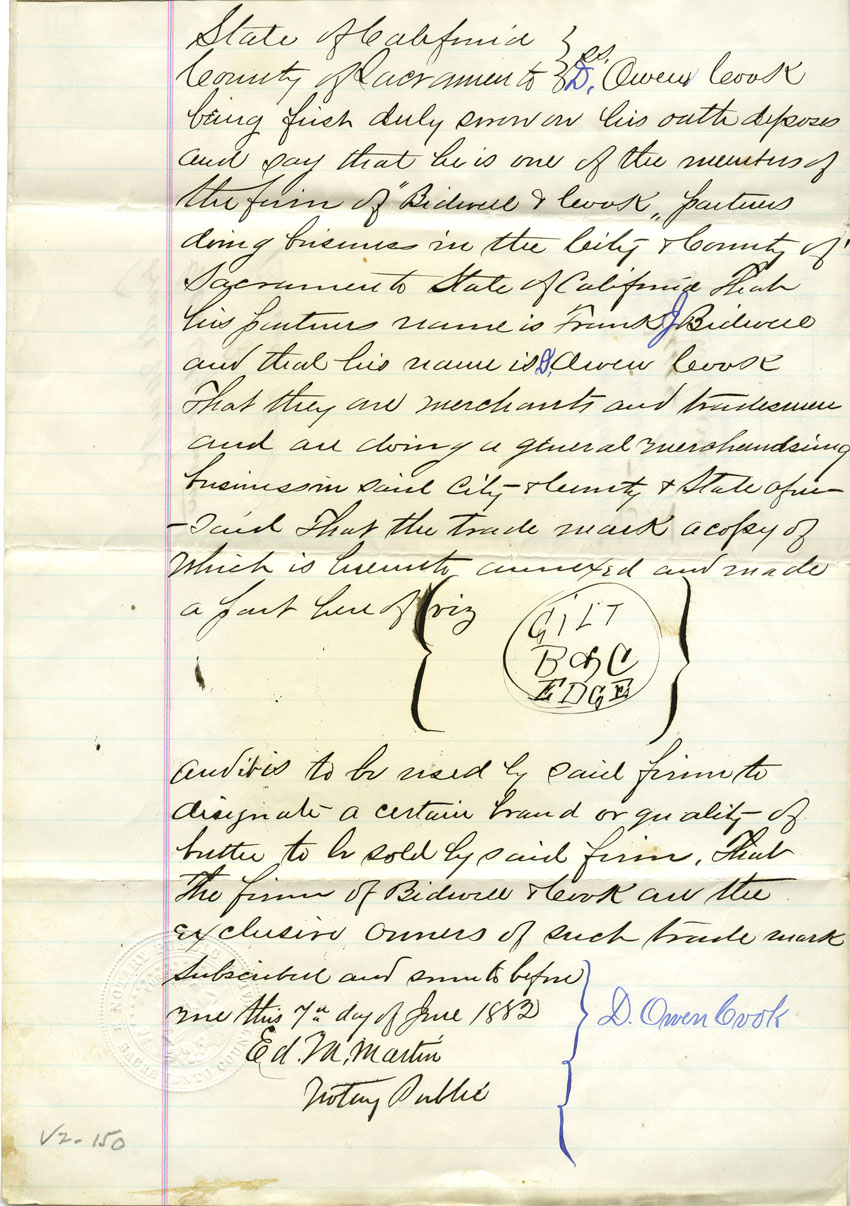 State of California } ss.
County of Sacramento } D. Owen Cook
being first duly sworn on his oath deposes
and say that he is one of the members of
the firm of "Bidwell & Cook„ partners
doing business in the City & County of
Sacramento State of California That
his partners name is Frank J Bidwell
and that his name is D. Owen Cook
That they are merchants and tradesmen
and are doing a general merchandising
business in said City & County & State afore-
-said That the trade mark a copy of
which is hereunto annexed and made
a part here of viz
GILT
B & C
EDGE
and it is to be used by said firm to
designate a certain brand or quality of
butter to be sold by said firm, That
the firm of Bidwell & Cook are the
exclusive owners of such trade mark
Subscribed and sworn to before
me this 7th day of June 1882
D. Owen Cook
Ed. M. Martin
Notary Public
V2-150